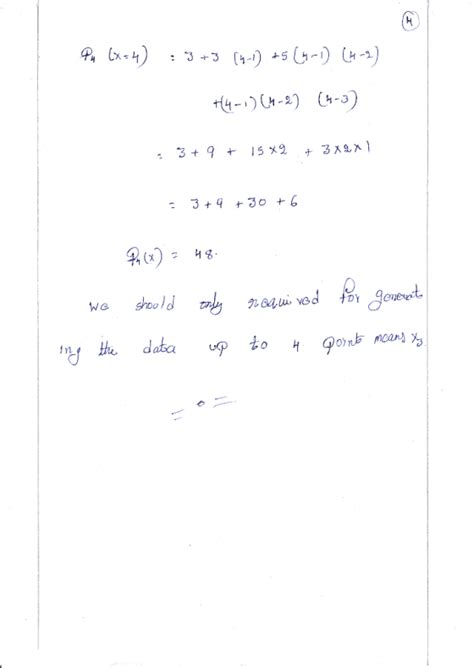 4
P₄ (x=4) = 3+3 (4-1) +5(4-1) (4-2)
+(4-1)(4-2) (4-3)
= 3+9 + 15×2 + 3×2×1
= 3+9 +30 +6
P₄(x) = 48.
We should only required for generat
ing the data up to 4 points means x₃
= 0 =